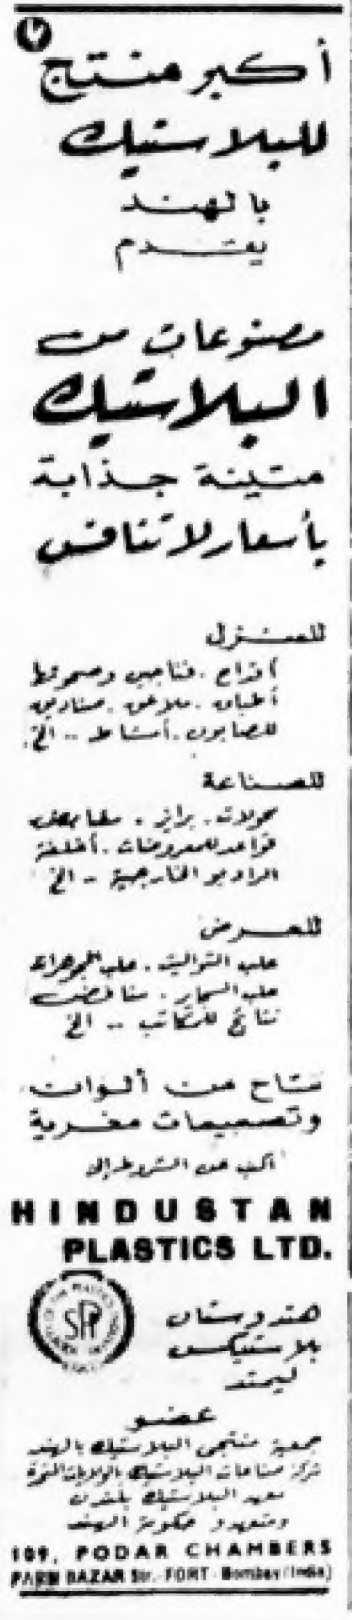 ٢
أكبر منتج
للبلاستيك
بالهند
يقدم
مصنوعات من
البلاستيك
متينة جذابة
بأسعار لا تنافس
للمنزل
أقداح . فناجين وصحونها
أطباق . ملاعق . صناديق
للصابون . أمشاط .. الخ
للصناعة
محولات . برايز . مقابض
قواعد للمعروضات . أغلفة
الراديو الخارجية .. الخ
للعرض
علب التواليت . علب المجوهرات
علب السجاير . منافض
نتائج للمكاتب .. الخ
تتاح من ألوان
وتصميمات مغرية
اكتب عن الشروط إلى
HINDUSTAN
PLASTICS LTD.
هندوستان
بلاستيكس
ليمتد
عضو
جمعية منتجى البلاستيك بالهند
شركة صناعات البلاستيك بالولايات المتحدة
معهد البلاستيك بلندن
ومتعهدو حكومة الهند
109, PODAR CHAMBERS
PARSI BAZAR Str. - FORT - Bombay (India)